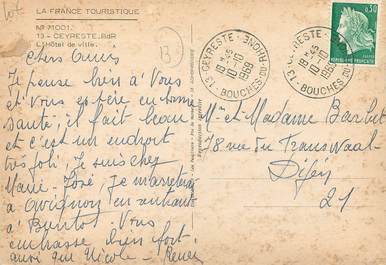 LA FRANCE TOURISTIQUE
Nº 71001.
13 - CEYRESTE. BdR
L'Hôtel de ville.
13
Chers Amis
Je pense bien à Vous
et Vous espère en bonne
santé, il fait beau
et c'est un endroit
très joli, Je suis chez
Marie-José, Je m'arrêterai
à Avignon en rentrant
à Bientot Vous
embrasse bien fort
ainsi que Nicole - Renée
13 - CEYRESTE - BOUCHES DU RHONE
18 H 45
10-10
1969
13 - CEYRESTE - BOUCHES DU RHONE
18 H 45
10-10
1969
0,30
REPUBLIQUE FRANCAISE
Mr et Madame Barbet
78 rue du Transvaal
Dijon
21